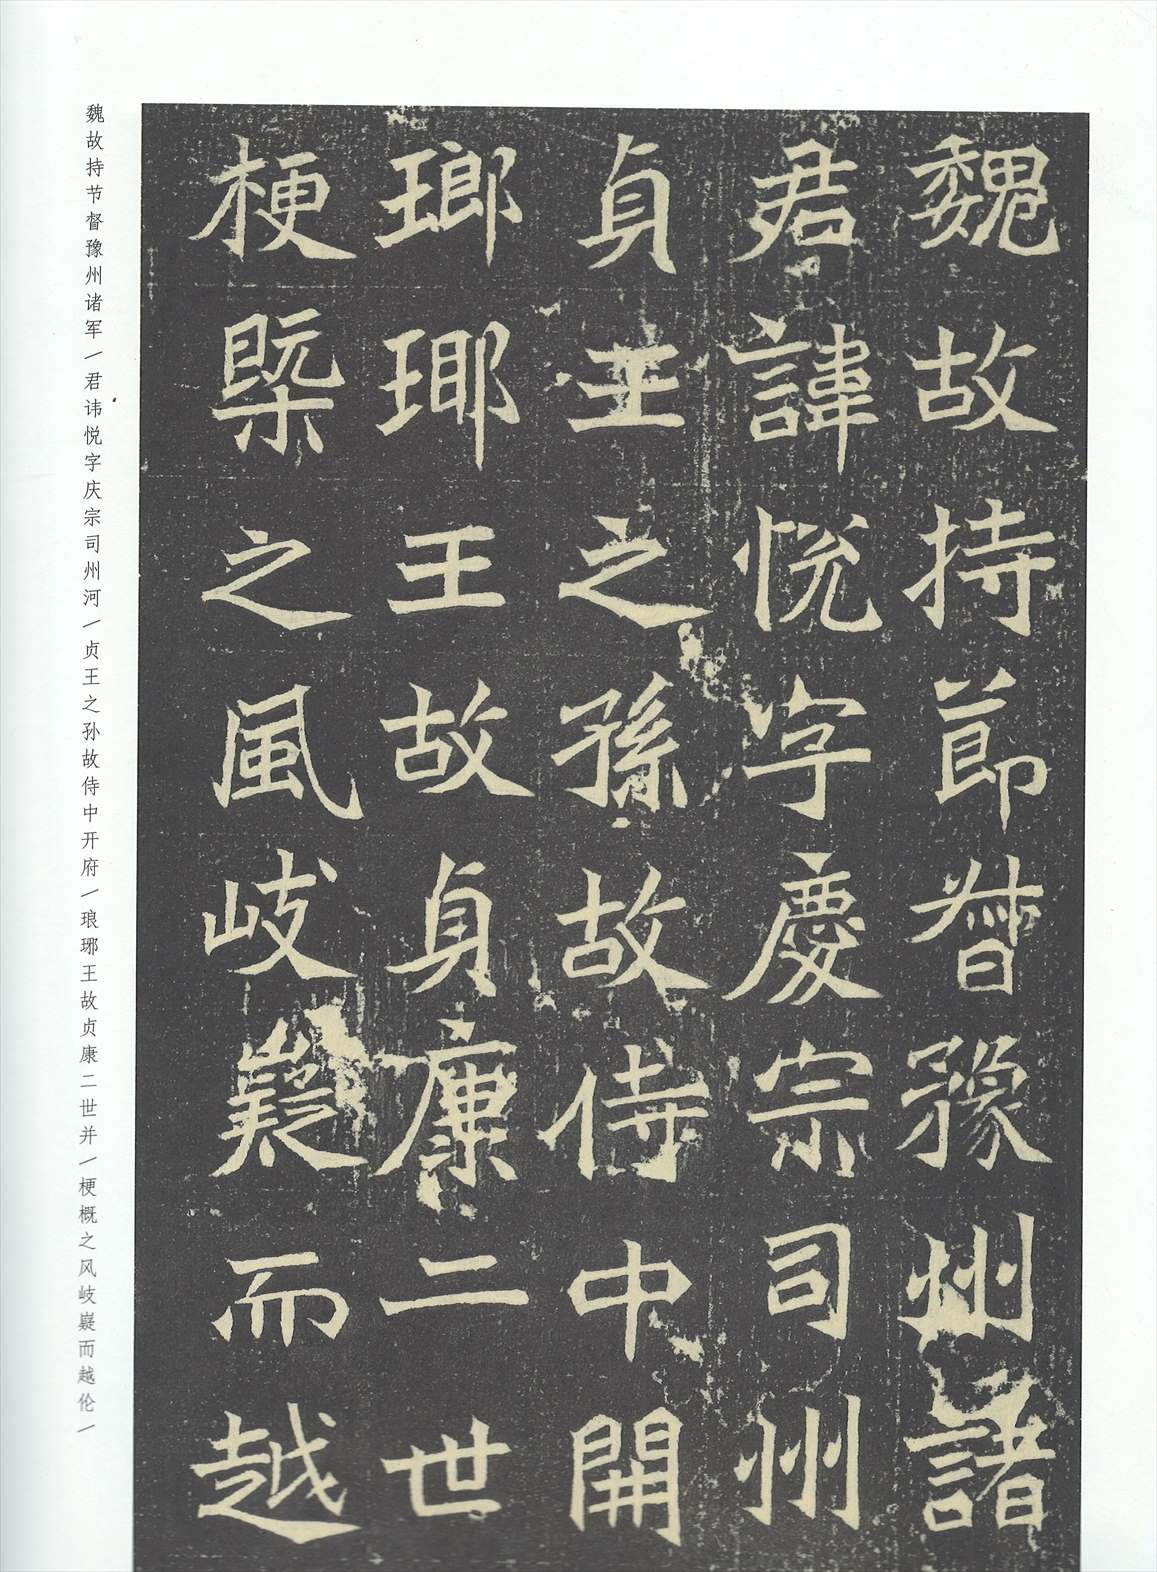 魏故持節督豫州諸
君諱悅字慶宗司州
貞王之孫故侍中開
瑯瑘王故貞康二世
梗槩之風岐嶷而越
魏故持节督豫州诸军/君讳悦字庆宗司州河/贞王之孙故侍中开府/琅琊王故贞康二世并/梗概之风岐嶷而越伦/